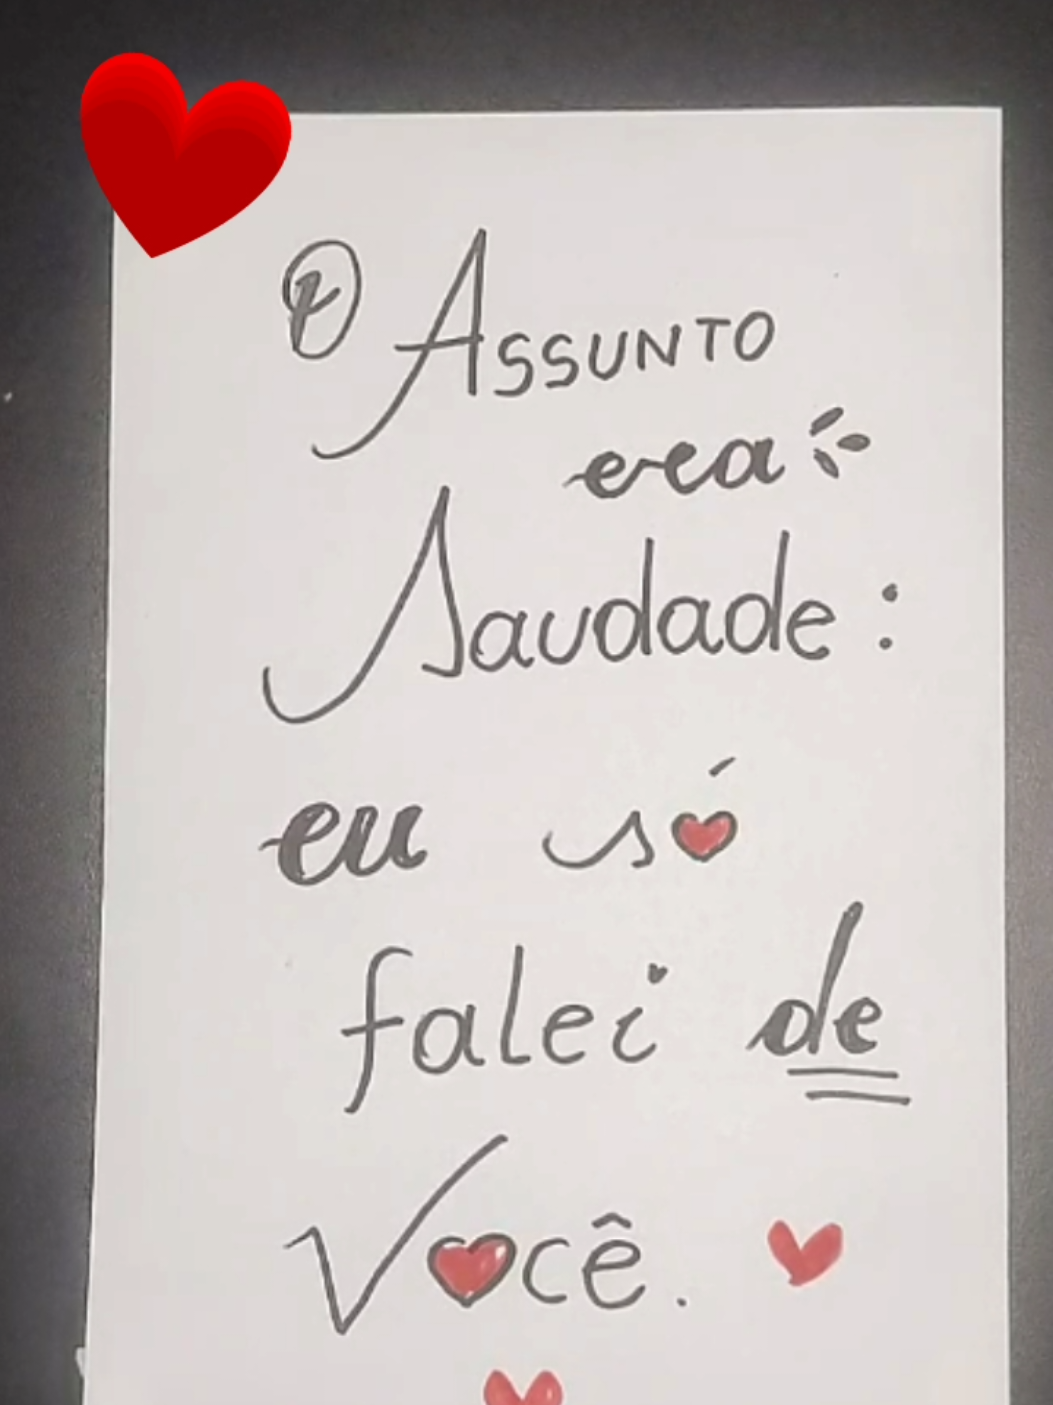 O Assunto
era
Saudade:
eu só
falei de
Você.